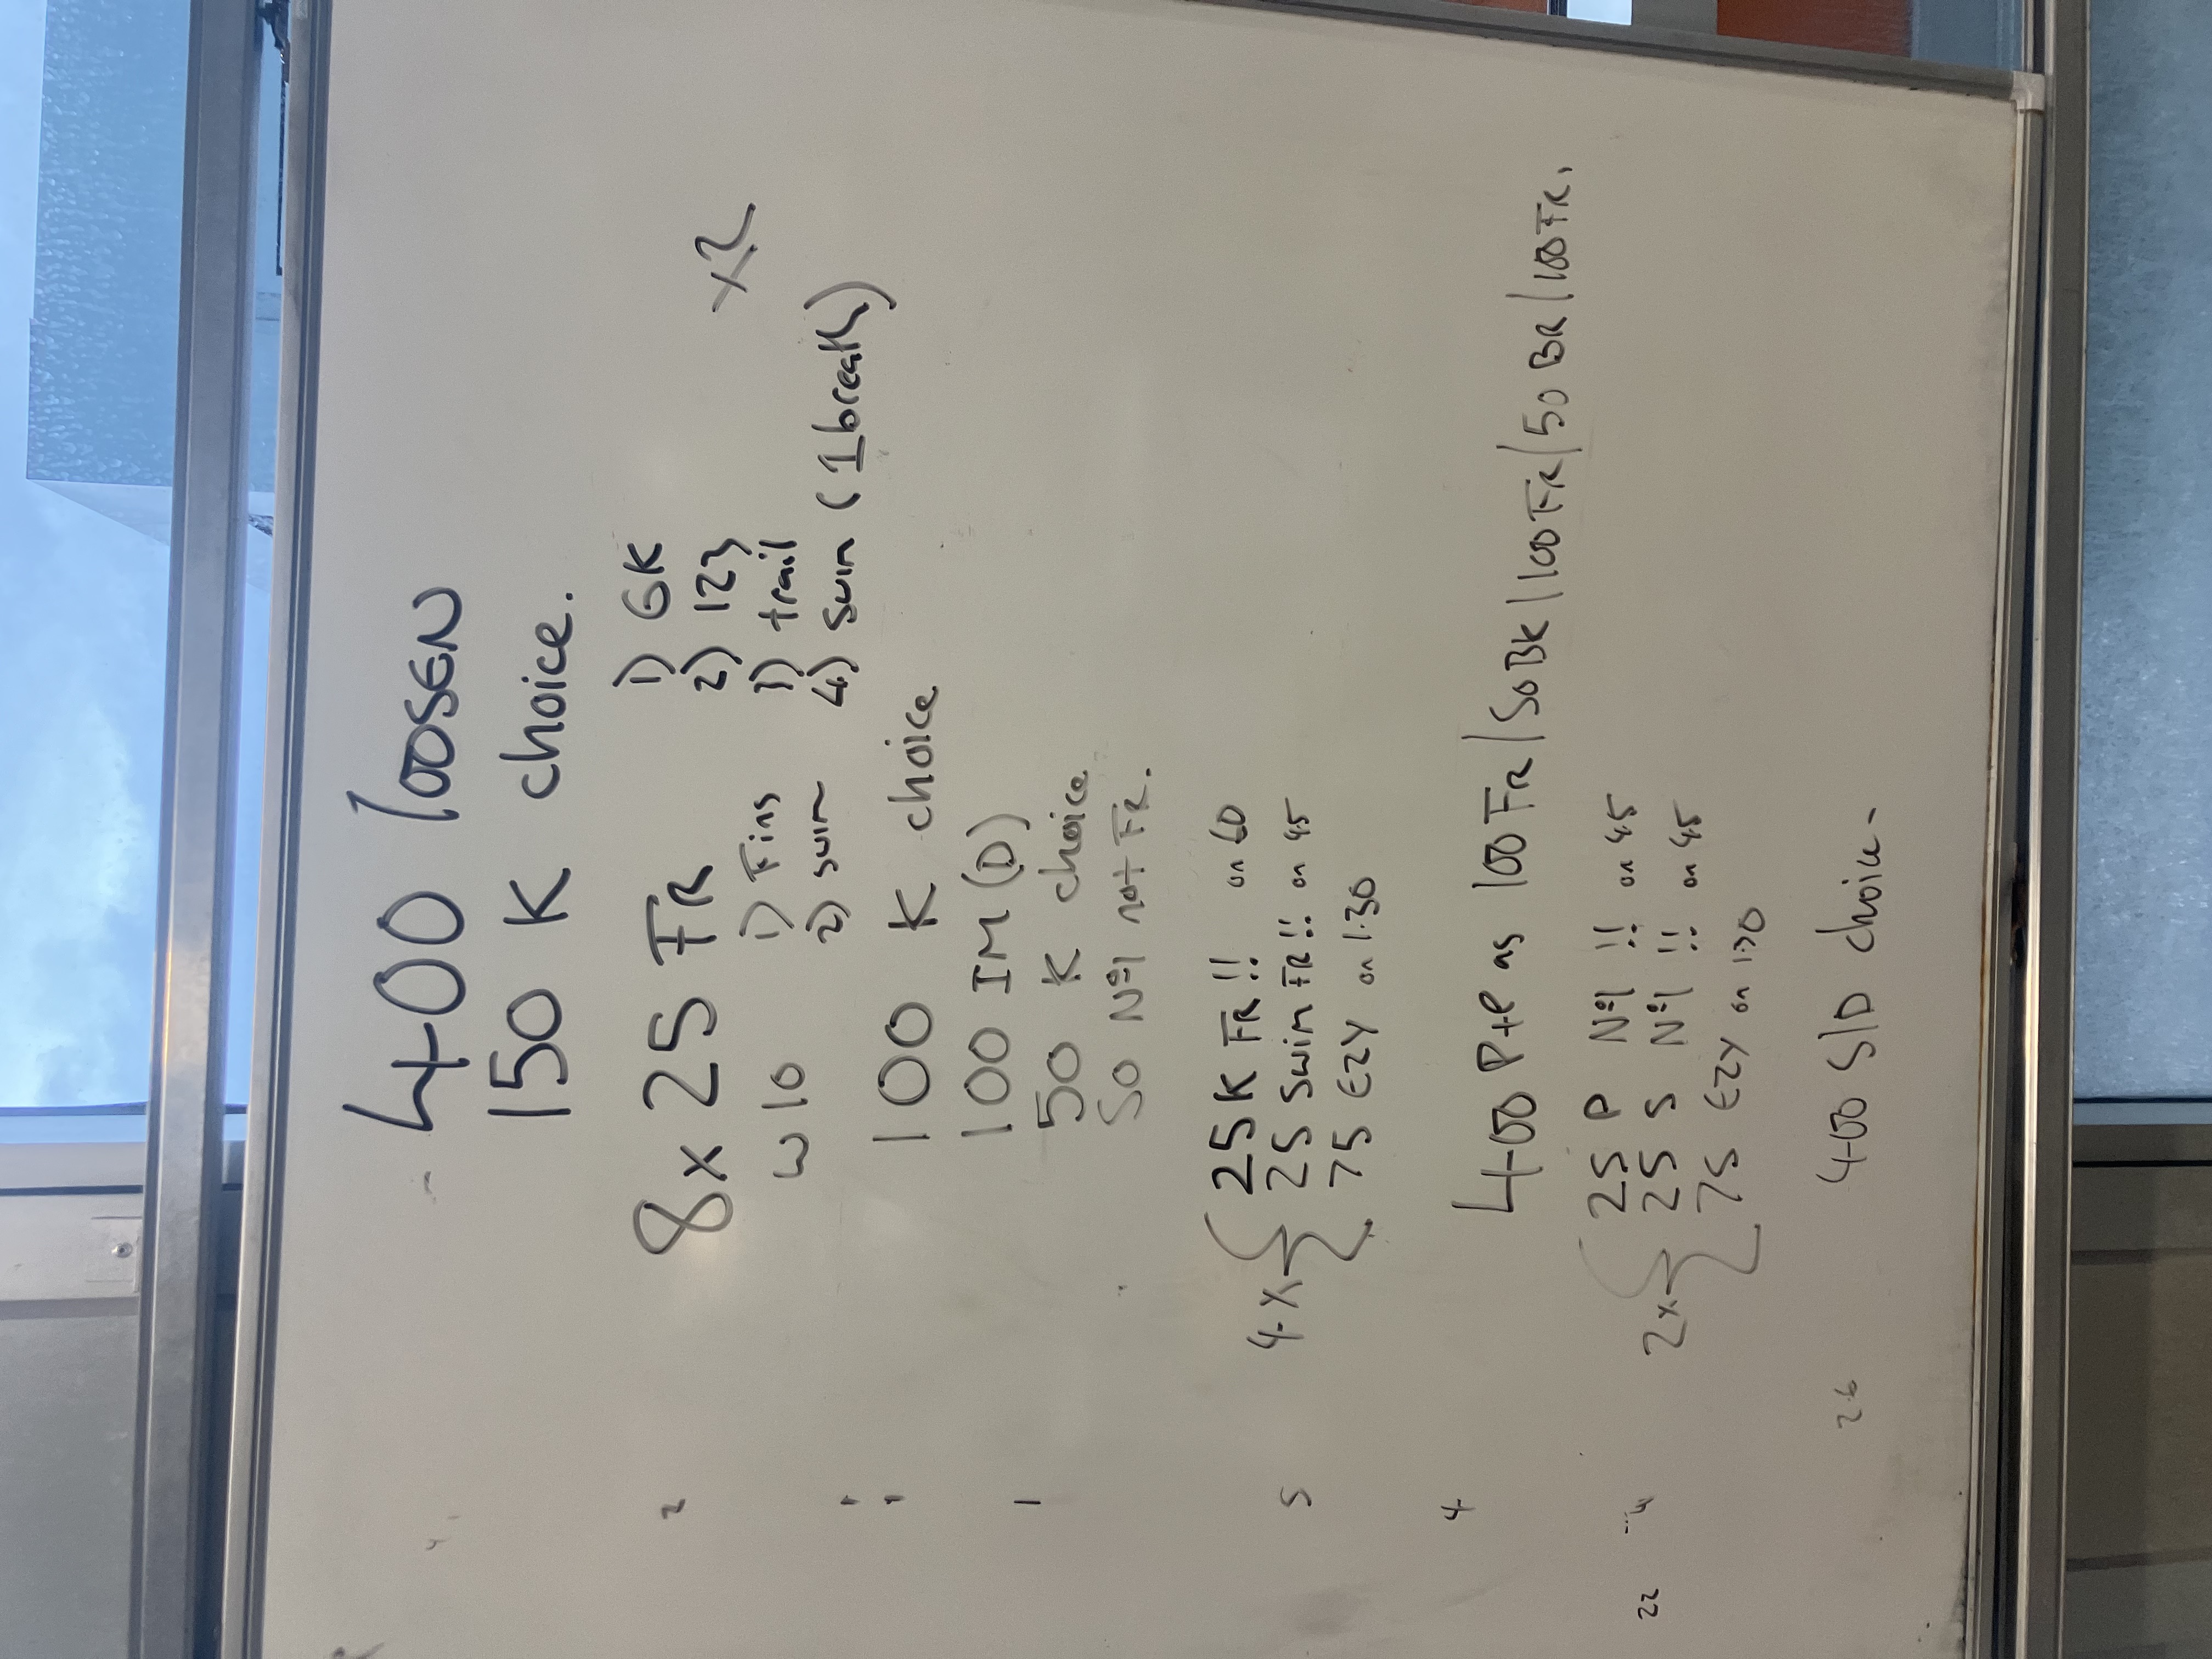 400 loosen
150 K choice.
8x 25 FR
w10
1) Fins
2) swim
1) 6K
2) 123
1) trail
4) swim (1 breath)
x2
100 K choice
100 IM (D)
50 K choice
50 Nº1 not FR.
4x { 25 K FR !! on 60
25 Swim FR !! on 45
75 EZY on 1.30
400 P+P as 100 FR / 50 BK / 100 FR / 50 BR / 100 FR.
2x { 25 P Nº1 !! on 45
25 S Nº1 !! on 45
75 EZY on 1.30
400 S/D choice-
2
1
5
4
22
26